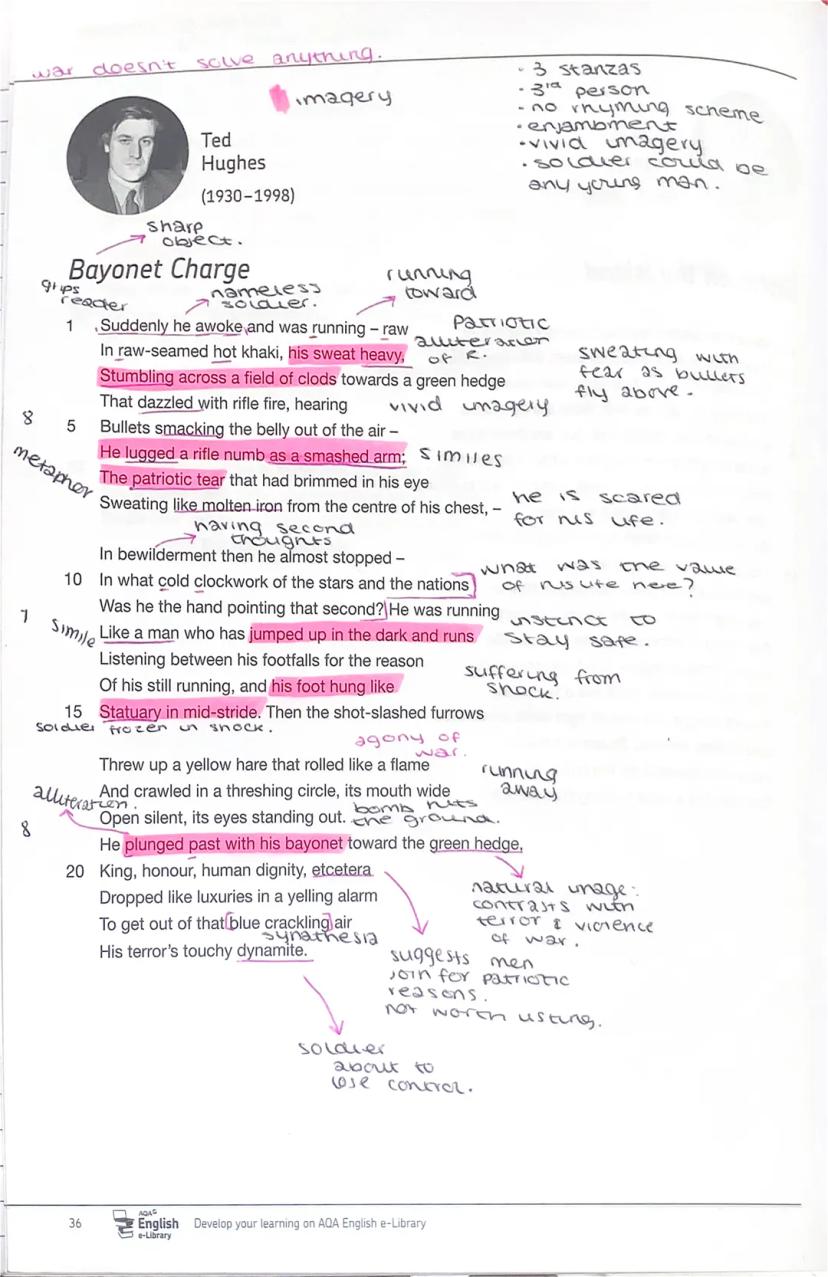 war doesn't solve anything.
imagery
• 3 stanzas
• 3rd person
• no rhyming scheme
• enjambment
• vivid imagery
• soldier could be
any young man.
Ted
Hughes
(1930–1998)
sharp
object.
Bayonet Charge
grips
reader
nameless
soldier.
running
toward
1 Suddenly he awoke and was running – raw
Patriotic
alliteration
of R.
In raw-seamed hot khaki, his sweat heavy,
sweating with
fear as bullets
fly above.
Stumbling across a field of clods towards a green hedge
That dazzled with rifle fire, hearing
vivid imagery
8
5 Bullets smacking the belly out of the air –
He lugged a rifle numb as a smashed arm;
similes
metaphor
The patriotic tear that had brimmed in his eye
Sweating like molten iron from the centre of his chest, –
he is scared
for his life.
having second
thoughts
In bewilderment then he almost stopped –
10 In what cold clockwork of the stars and the nations
what was the value
of his life here?
Was he the hand pointing that second? He was running
7
simile
Like a man who has jumped up in the dark and runs
instinct to
stay safe.
Listening between his footfalls for the reason
Of his still running, and his foot hung like
suffering from
shock.
15 Statuary in mid-stride. Then the shot-slashed furrows
soldier frozen in shock.
agony of
war.
Threw up a yellow hare that rolled like a flame
running
away
And crawled in a threshing circle, its mouth wide
alliteration.
Open silent, its eyes standing out.
bomb hits
the ground.
8
He plunged past with his bayonet toward the green hedge,
20 King, honour, human dignity, etcetera
Dropped like luxuries in a yelling alarm
natural image:
contrasts with
terror & violence
of war.
To get out of that blue crackling air
synathesia
His terror's touchy dynamite.
suggests men
join for patriotic
reasons.
not worth listing.
soldier
about to
lose control.
36
AQA
English
e-Library
Develop your learning on AQA English e-Library